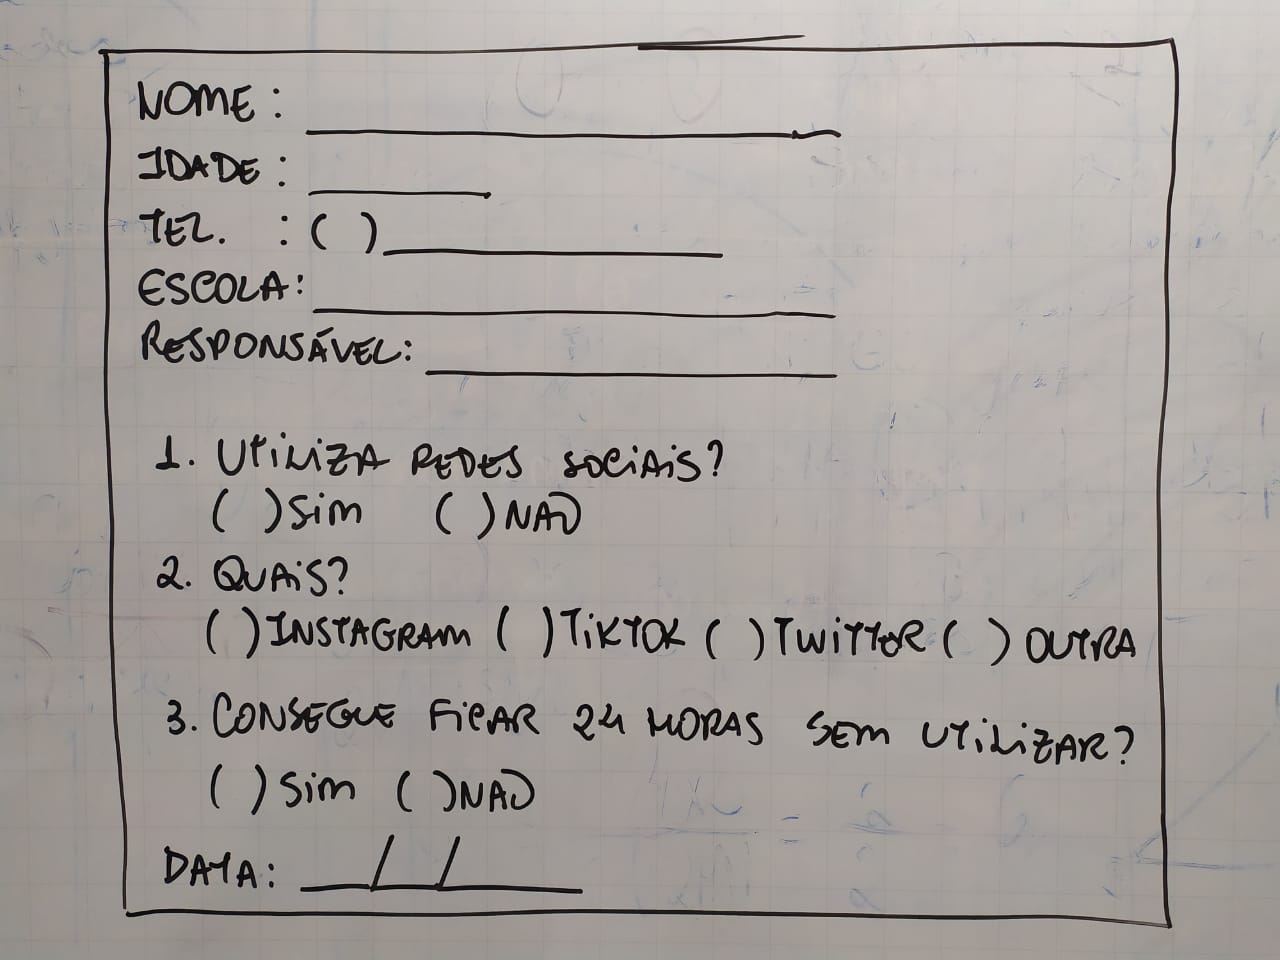 NOME: ____________________
IDADE: _______
TEL. : ( )______________
ESCOLA: ____________________
RESPONSÁVEL: ________________
1. UTILIZA REDES SOCIAIS?
( ) SIM ( ) NÃO
2. QUAIS?
( ) INSTAGRAM ( ) TIKTOK ( ) TWITTOR ( ) OUTRA
3. CONSEGUE FICAR 24 HORAS SEM UTILIZAR?
( ) SIM ( ) NÃO
DATA: ___/___/_____